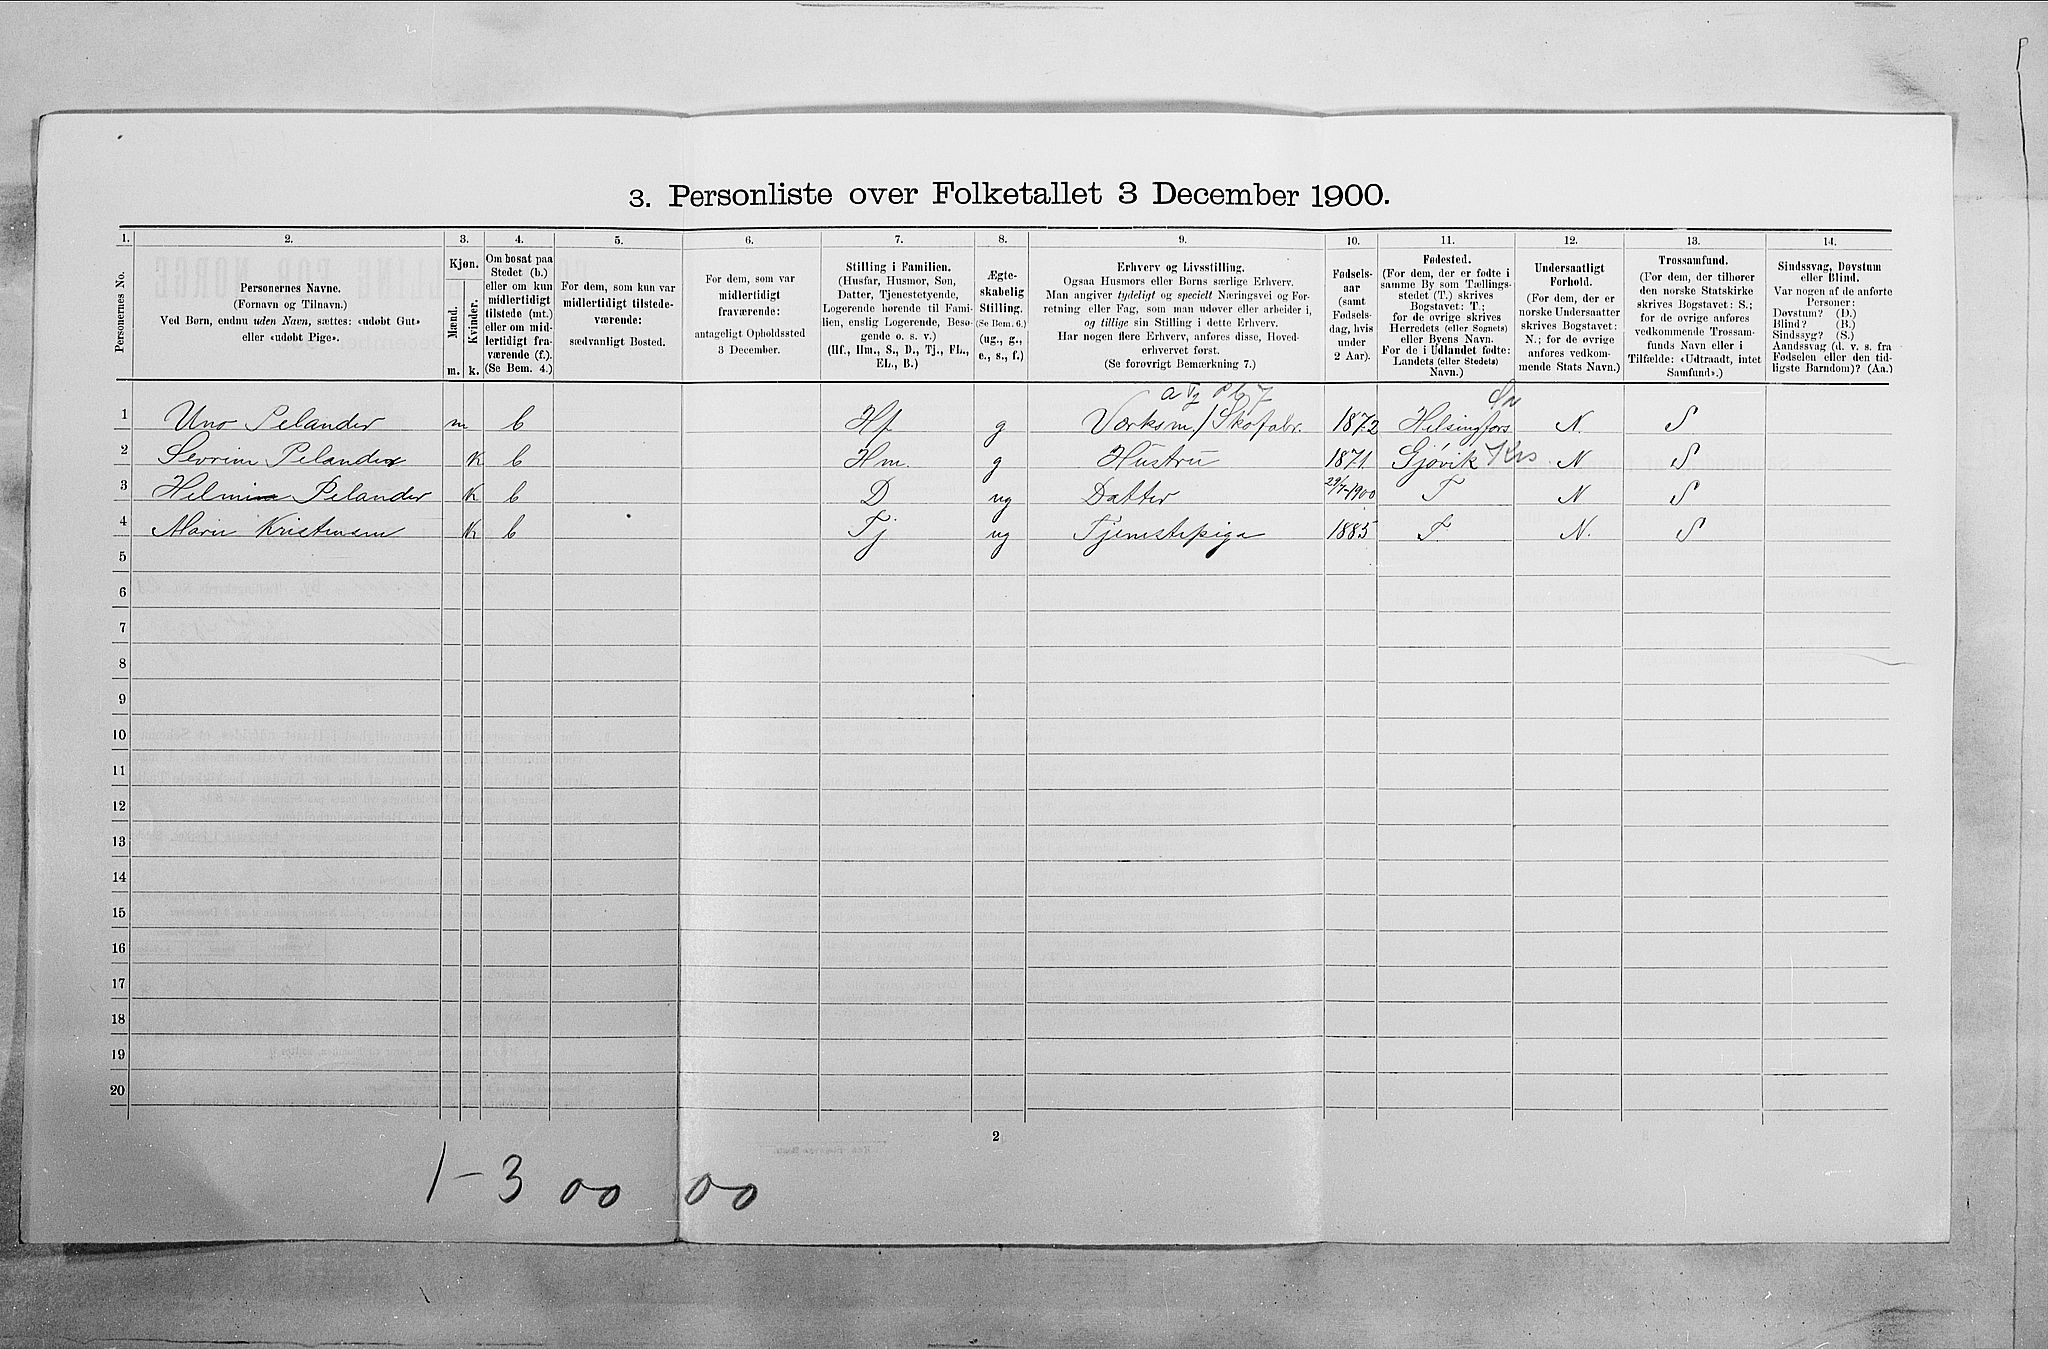 3. Personliste over Folketallet 3 December 1900.
1. 2. 3. 4. 5. 6. 7. 8. 9. 10. 11. 12. 13. 14.
Personernes No.
Personernes Navne.
(Fornavn og Tilnavn.)
Ved Børn, endnu uden Navn, sættes: «udøbt Gut»
eller «udøbt Pige».
Kjøn.
Mænd.
Kvinder.
m. k.
Om bosat paa
Stedet (b.)
eller om kun
midlertidigt
tilstede (mt.)
eller om mid-
lertidigt fra-
værende (f.).
(Se Bem. 4.)
For dem, som kun var
midlertidigt tilstede-
værende:
sædvanligt Bosted.
For dem, som var
midlertidigt
fraværende:
antageligt Opholdssted
3 December.
Stilling i Familien.
(Husfar, Husmor, Søn,
Datter, Tjenestetyende,
Logerende hørende til Fami-
lien, enslig Logerende, Besø-
gende o. s. v.)
(Hf., Hm., S., D., Tj., FL.,
EL., B.)
Ægte-
skabelig
Stilling.
(Se Bem. 6.)
(ug., g.,
e., s., f.)
Erhverv og Livsstilling.
Ogsaa Husmors eller Børns særlige Erhverv.
Man angiver tydeligt og specielt Næringsvei og For-
retning eller Fag, som man udøver eller arbeider i,
og tillige sin Stilling i dette Erhverv.
Har nogen flere Erhverv, anføres disse, Hoved-
erhvervet først.
(Se forøvrigt Bemærkning 7.)
Fødsels-
aar
(samt
Fødsels-
dag, hvis
under
2 Aar).
Fødested.
(For dem, der er fødte i
samme By som Tællings-
stedet (T.) skrives
Bogstavet: T;
for de øvrige skrives
Herredets (eller Sognets)
eller Byens Navn.
For de i Udlandet fødte:
Landets (eller Stedets)
Navn.)
Undersaatligt
Forhold.
(For dem, der er
norske Undersaatter
skrives Bogstavet:
N.; for de øvrige
anføres vedkom-
mende Stats Navn.)
Trossamfund.
(For dem, der tilhører
den norske Statskirke
skrives Bogstavet: S.;
for de øvrige anføres
vedkommende Trossam-
funds Navn eller i
Tilfælde: «Udtraadt, intet
Samfund».)
Sindssvag, Døvstum
eller Blind.
Var nogen af de anførte
Personer:
Døvstum? (D.)
Blind? (B.)
Sindssyg? (S.)
Aandssvag (d. v. s. fra
Fødselen eller den tid-
ligste Barndom)? (Aa.)
1 Uno Pelander m b Hf g Værksm/Skofabr. 1872 Helsingfors N. S
2 Sevrim Pelander k b Hm. g Hustru 1871 Gjøvik Krs N S
3 Helmina Pelander k b D ug Datter 29/7-1900 T N S
4 Marie Kristensen k b Tj ug Tjenestepige 1885 T. N. S
5
6
7
8
9
10
11
12
13
14
15
16
17
18
19
20
2
1-3 00 00